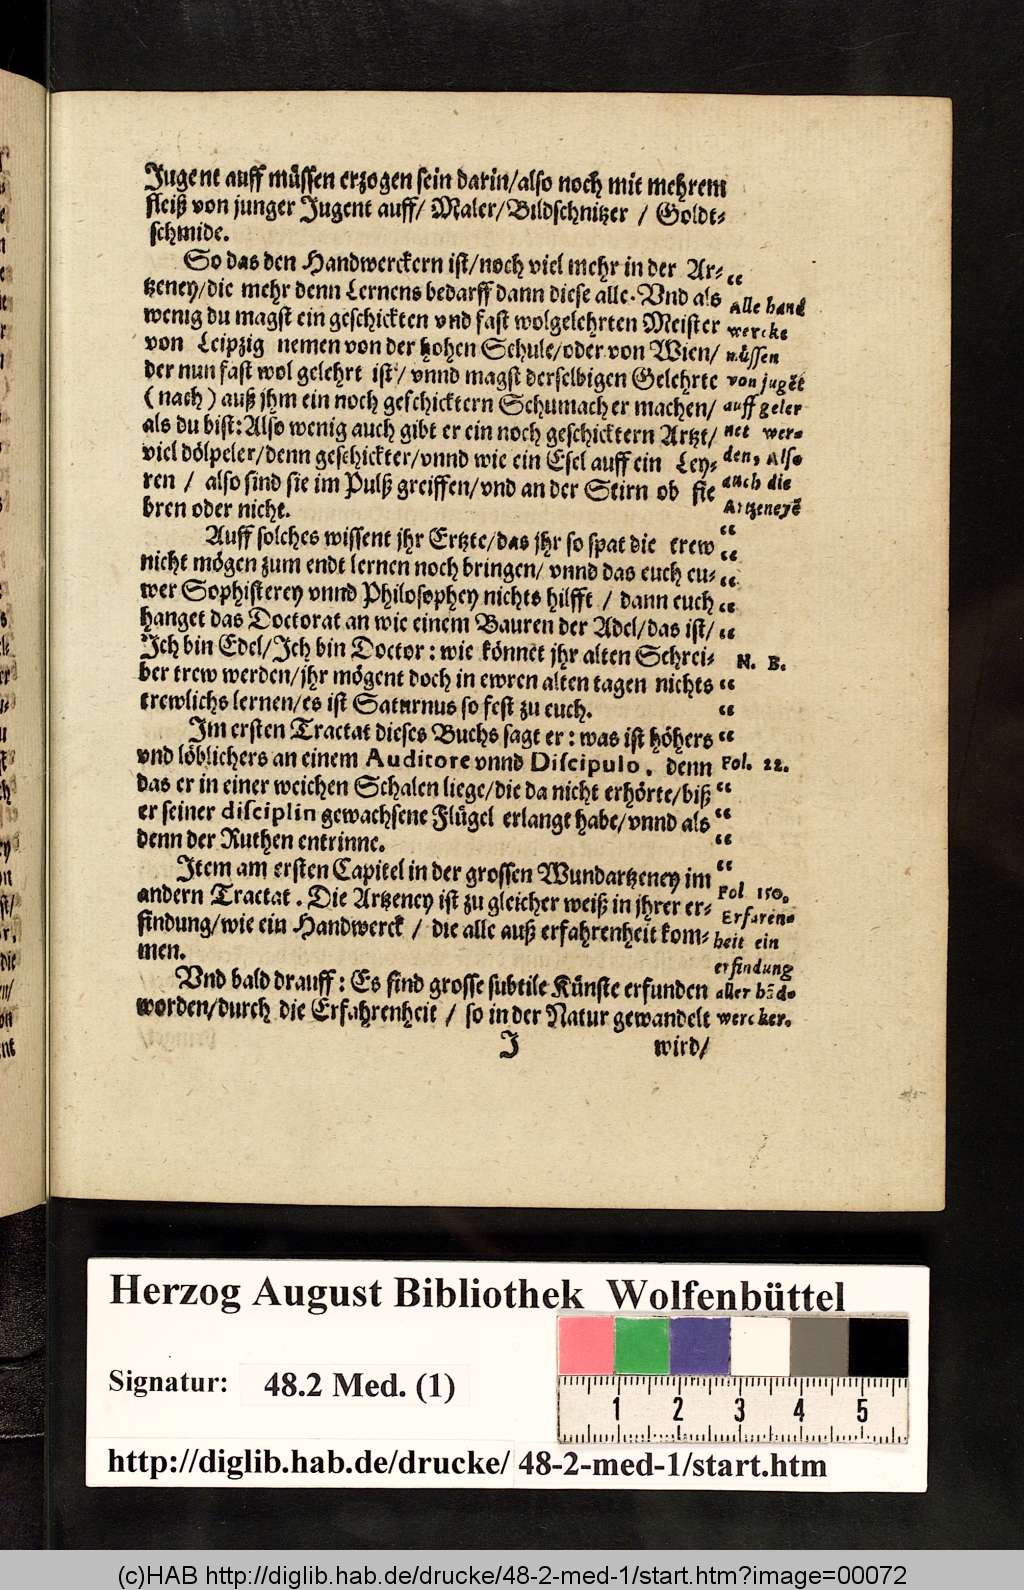 Jugent auff müssen erzogen sein darin/also noch mit mehrem
fleiß von junger Jugent auff/ Maler/Bildschnitzer / Goldt-
schmide.
So das den Handwerckern ist/noch viel mehr in der Ar-
tzeney/die mehr denn Lernens bedarff dann diese alle. Vnd als
wenig du magst ein geschickten vnd fast wolgelehrten Meister
von Leipzig nemen von der hohen Schule/oder von Wien/
der nun fast wol gelehrt ist/ vnnd magst derselbigen Gelehrte
(nach) auß jhm ein noch geschicktern Schumacher machen/
als du bist: Also wenig auch gibt er ein noch geschicktern Artzt/
viel dölpeler/denn geschickter/vnnd wie ein Esel auff ein Ley-
ren / also sind sie im Pulß greiffen/vnd an der Stirn ob sie
bren oder nicht.
Auff solches wissent jhr Ertzte/das jhr so spat die trew
nicht mögen zum endt lernen noch bringen/ vnnd das euch eu-
wer Sophisterey vnnd Philosophey nichts hilfft / dann euch
hanget das Doctorat an wie einem Bauren der Adel/das ist/
Ich bin Edel/Ich bin Doctor: wie könnet jhr alten Schrei-
ber trew werden/jhr mögent doch in ewren alten tagen nichts
trewlichs lernen/es ist Saturnus so fest zu euch.
Im ersten Tractat dieses Buchs sagt er: was ist höhers
vnd löblichers an einem Auditore vnnd Discipulo, denn
das er in einer weichen Schalen liege/die da nicht erhörte/biß
er seiner disciplin gewachsene Flügel erlangt habe/vnnd als
denn der Ruthen entrinne.
Item am ersten Capitel in der grossen Wundartzeney im
andern Tractat. Die Artzeney ist zu gleicher weiß in jhrer er-
findung/wie ein Handwerck / die alle auß erfahrenheit kom-
men.
Vnd bald drauff: Es sind grosse subtile Künste erfunden
worden/durch die Erfahrenheit / so in der Natur gewandelt
J wird/
“
Alle hand
wercke
müssen
von jugēt
auff geler
net wer-
den, Also
auch die
Artzeneyē
“
“
“
“
“
N. B.
“
“
“
Fol. 22.
“
“
“
“
Fol 150.
Erfaren-
heit ein
erfindung
aller hād-
wercker.
Herzog August Bibliothek Wolfenbüttel
Signatur: 48.2 Med. (1)
1 2 3 4 5
http://diglib.hab.de/drucke/ 48-2-med-1/start.htm
(c)HAB http://diglib.hab.de/drucke/48-2-med-1/start.htm?image=00072